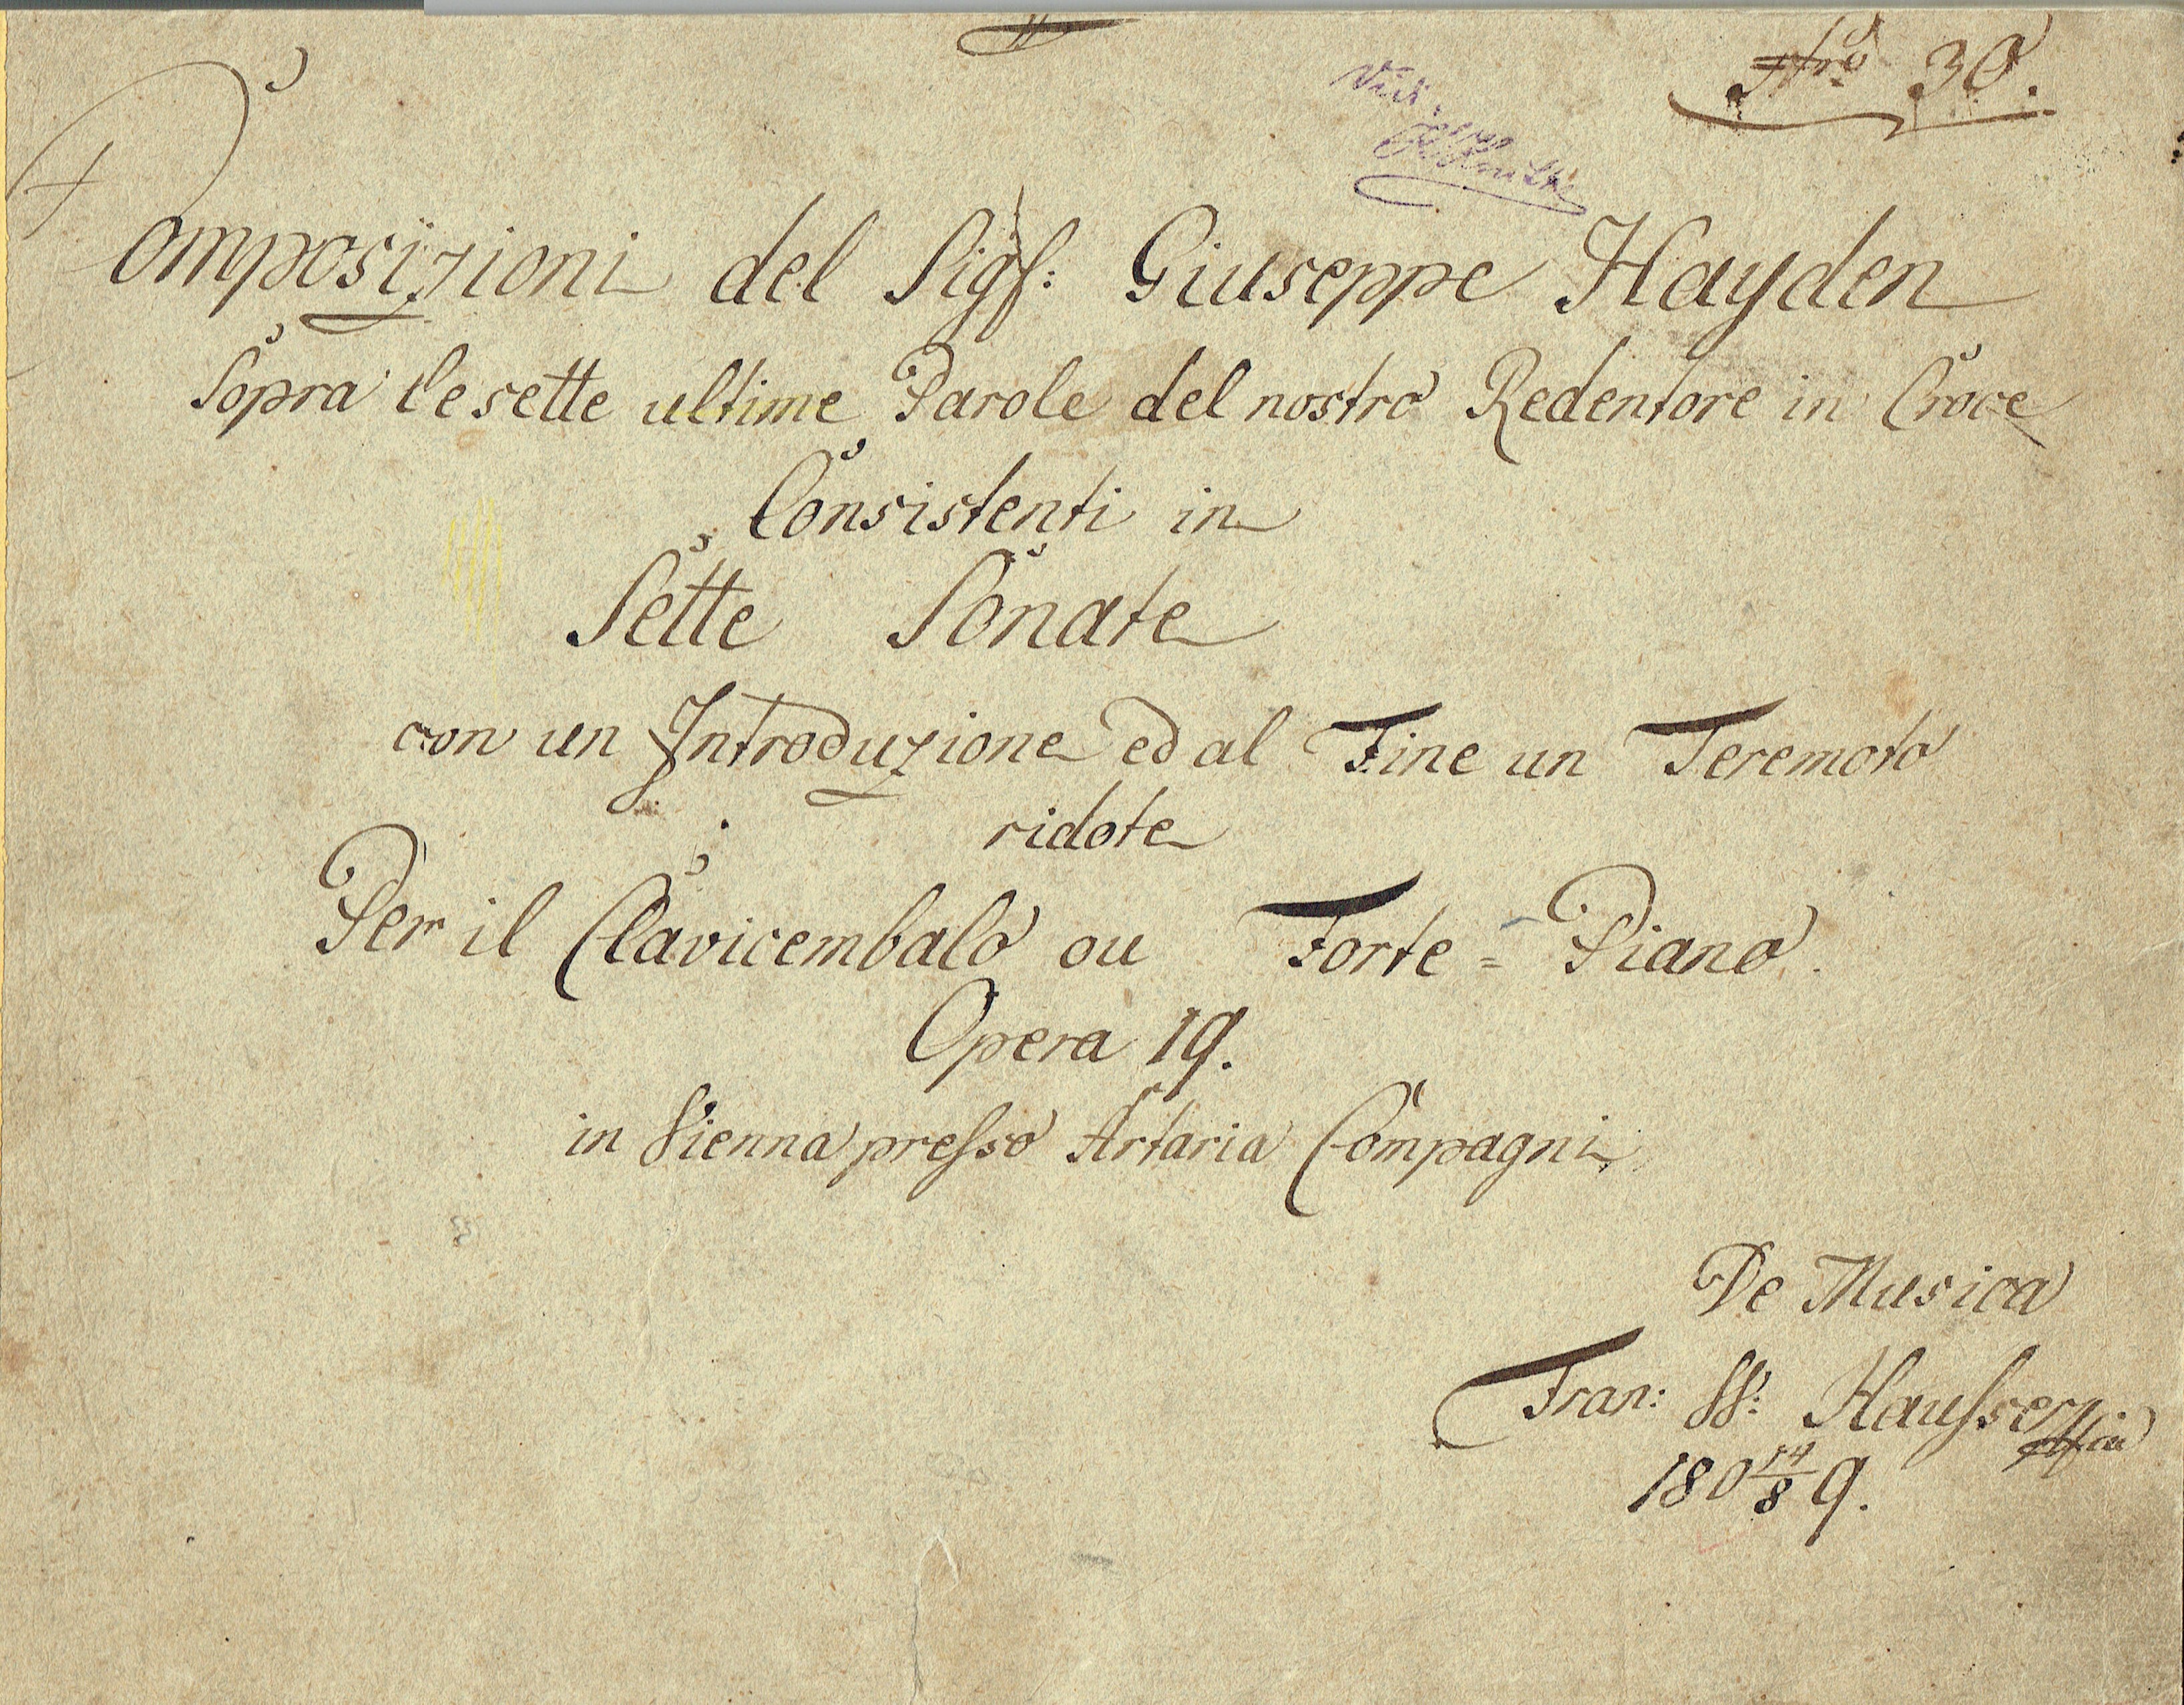 Nro 30.
Composizioni del Sigr: Giuseppe Hayden
Sopra le sette ultime Parole del nostro Redentore in Croce
Consistenti in
Sette Sonate
con un Introduzione ed al Fine un Teremoto
ridote
Per il Clavicembalo ou Forte = Piano.
Opera 19.
in Vienna presso Artaria Compagni
De Musica
Fran: Hausser
180 14/8 9.